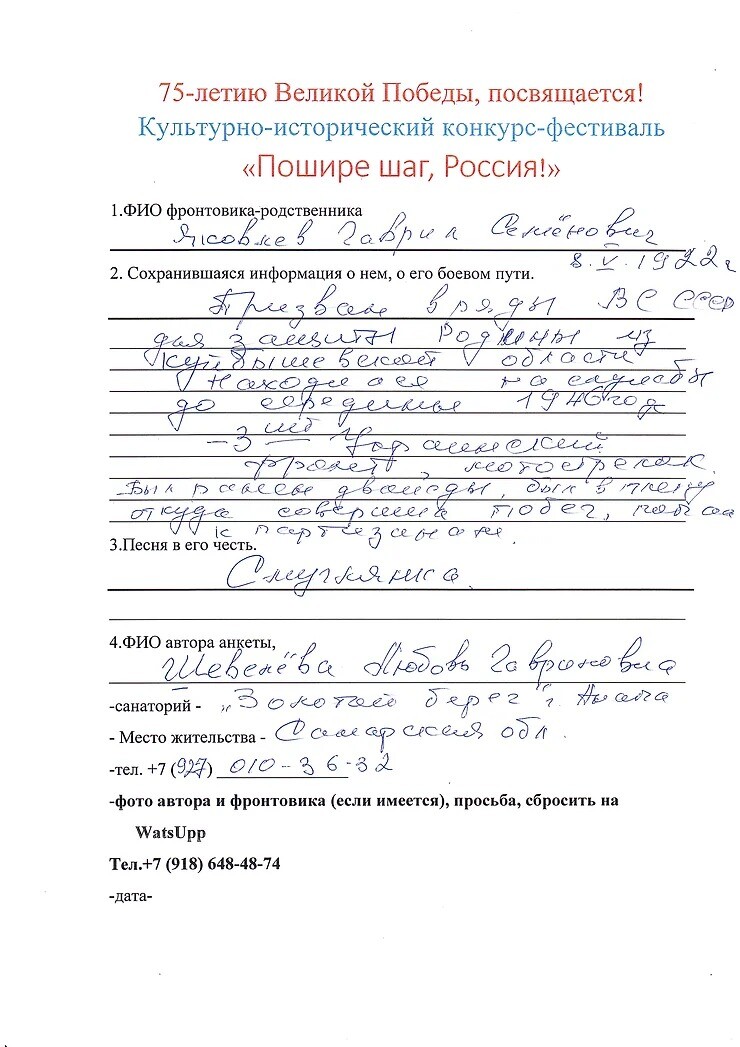 75-летию Великой Победы, посвящается!
Культурно-исторический конкурс-фестиваль
«Пошире шаг, Россия!»
1.ФИО фронтовика-родственника
Яковлев Гаврил Семёнович
8.V.1922г
2. Сохранившаяся информация о нем, о его боевом пути.
Призван в ряды ВС СССР
для защиты Родины из
Куйбышевской области
Находился на службы
до середины 1946 год
– 3 Украинский
фронт, мотострелок.
Был ранен дважды, был в плену
откуда совершил побег, попал
к партизанам.
3.Песня в его честь.
Смуглянка
4.ФИО автора анкеты,
Шевелёва Любовь Гавриловна
-санаторий - „Золотой берег“ г. Анапа
- Место жительства - Самарская обл.
-тел. +7 (927) 010-36-32
-фото автора и фронтовика (если имеется), просьба, сбросить на
WatsUpp
Тел.+7 (918) 648-48-74
-дата-